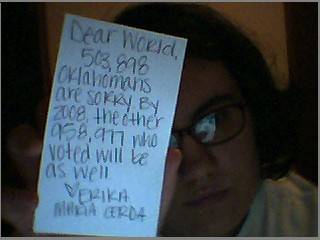 Dear World,
503,898
Oklahomans
are sorry. By
2008, the other
958,977 who
voted will be
as well.
♡ ERIKA
MARIA CERDA